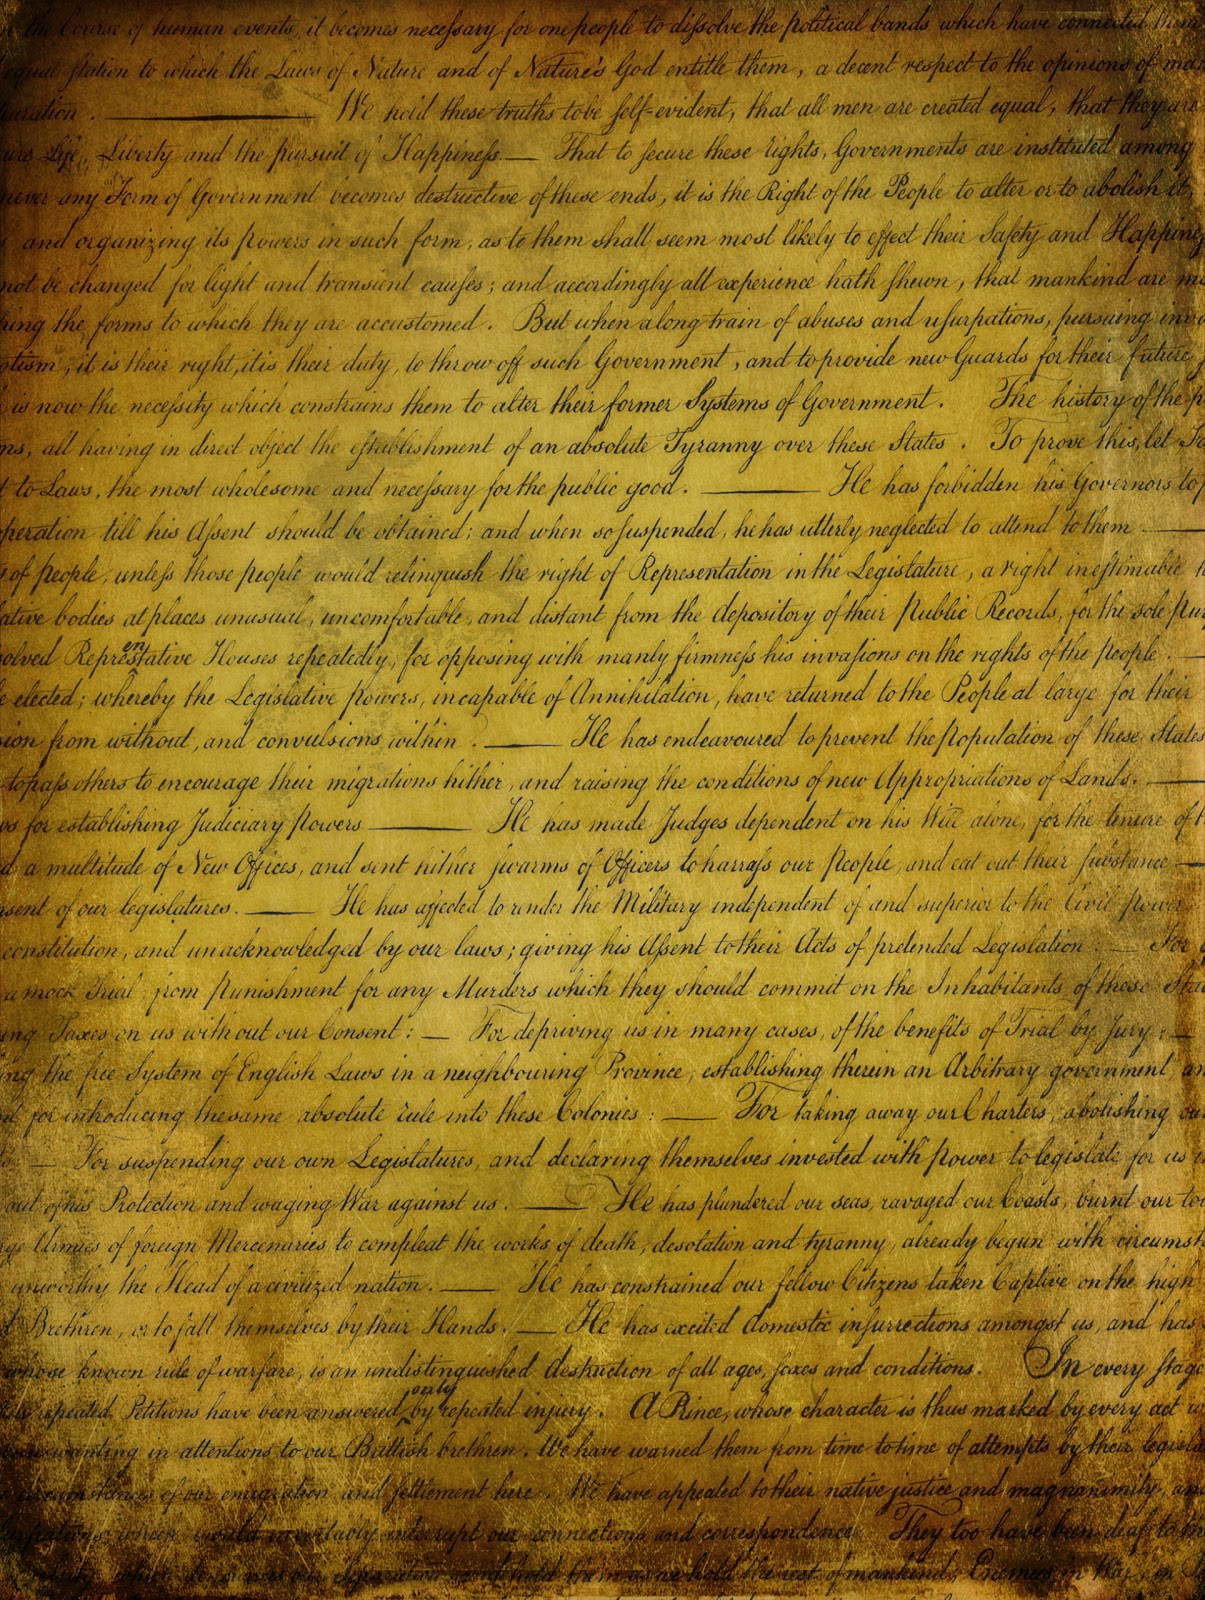 the Course of human events, it becomes necessary for one people to dissolve the political bands which have connected them
equal station to which the Laws of Nature and of Nature's God entitle them, a decent respect to the opinions of man
aration. — We hold these truths to be self-evident, that all men are created equal, that they are
are Life, Liberty and the pursuit of Happiness. — That to secure these rights, Governments are instituted among
never any Form of Government becomes destructive of these ends, it is the Right of the People to alter or to abolish it,
and organizing its powers in such form, as to them shall seem most likely to effect their Safety and Happines
not be changed for light and transient causes; and accordingly all experience hath shewn, that mankind are mo
hing the forms to which they are accustomed. But when a long train of abuses and usurpations, pursuing inva
otism, it is their right, it is their duty, to throw off such Government, and to provide new Guards for their future
is now the necessity which constrains them to alter their former Systems of Government. The history of the p
ns, all having in direct object the establishment of an absolute Tyranny over these States. To prove this, let Fa
t to Laws, the most wholesome and necessary for the public good. — He has forbidden his Governors to p
peration till his Assent should be obtained; and when so suspended, he has utterly neglected to attend to them —
s of people, unless those people would relinquish the right of Representation in the Legislature, a right inestimable t
lative bodies at places unusual, uncomfortable, and distant from the depository of their Public Records, for the sole pur
solved Representative Houses repeatedly, for opposing with manly firmness his invasions on the rights of the people. —
e elected; whereby the Legislative powers, incapable of Annihilation, have returned to the People at large for their
sion from without, and convulsions within. — He has endeavoured to prevent the population of these States
to pass others to encourage their migrations hither, and raising the conditions of new Appropriations of Lands. —
ws for establishing Judiciary powers — He has made Judges dependent on his Will alone, for the tenure of t
d a multitude of New Offices, and sent hither swarms of Officers to harrass our People, and eat out their substance —
nsent of our legislatures. — He has affected to render the Military independent of and superior to the Civil power
constitution, and unacknowledged by our laws; giving his Assent to their Acts of pretended Legislation: — For q
a mock Trial, from punishment for any Murders which they should commit on the Inhabitants of these Stat
ing Taxes on us without our Consent: — For depriving us in many cases, of the benefits of Trial by Jury: —
ing the free System of English Laws in a neighbouring Province, establishing therein an Arbitrary government, an
nt for introducing the same absolute rule into these Colonies: — For taking away our Charters, abolishing ou
— For suspending our own Legislatures, and declaring themselves invested with power to legislate for us i
out of his Protection and waging War against us. — He has plundered our seas, ravaged our Coasts, burnt our to
rge Armies of foreign Mercenaries to compleat the works of death, desolation and tyranny, already begun with circumst
unworthy the Head of a civilized nation. — He has constrained our fellow Citizens taken Captive on the high
d Brethren, or to fall themselves by their Hands. — He has excited domestic insurrections amongst us, and has
whose known rule of warfare, is an undistinguished destruction of all ages, sexes and conditions. In every stage
repeated Petitions have been answered only by repeated injury. A Prince, whose character is thus marked by every act w
wanting in attentions to our Brittish brethren. We have warned them from time to time of attempts by their legisla
circumstances of our emigration and settlement here. We have appealed to their native justice and magnanimity, an
which would inevitably interrupt our connections and correspondence. They too have been deaf to th
our Separation, and hold them, as we hold the rest of mankind, Enemies in War, in